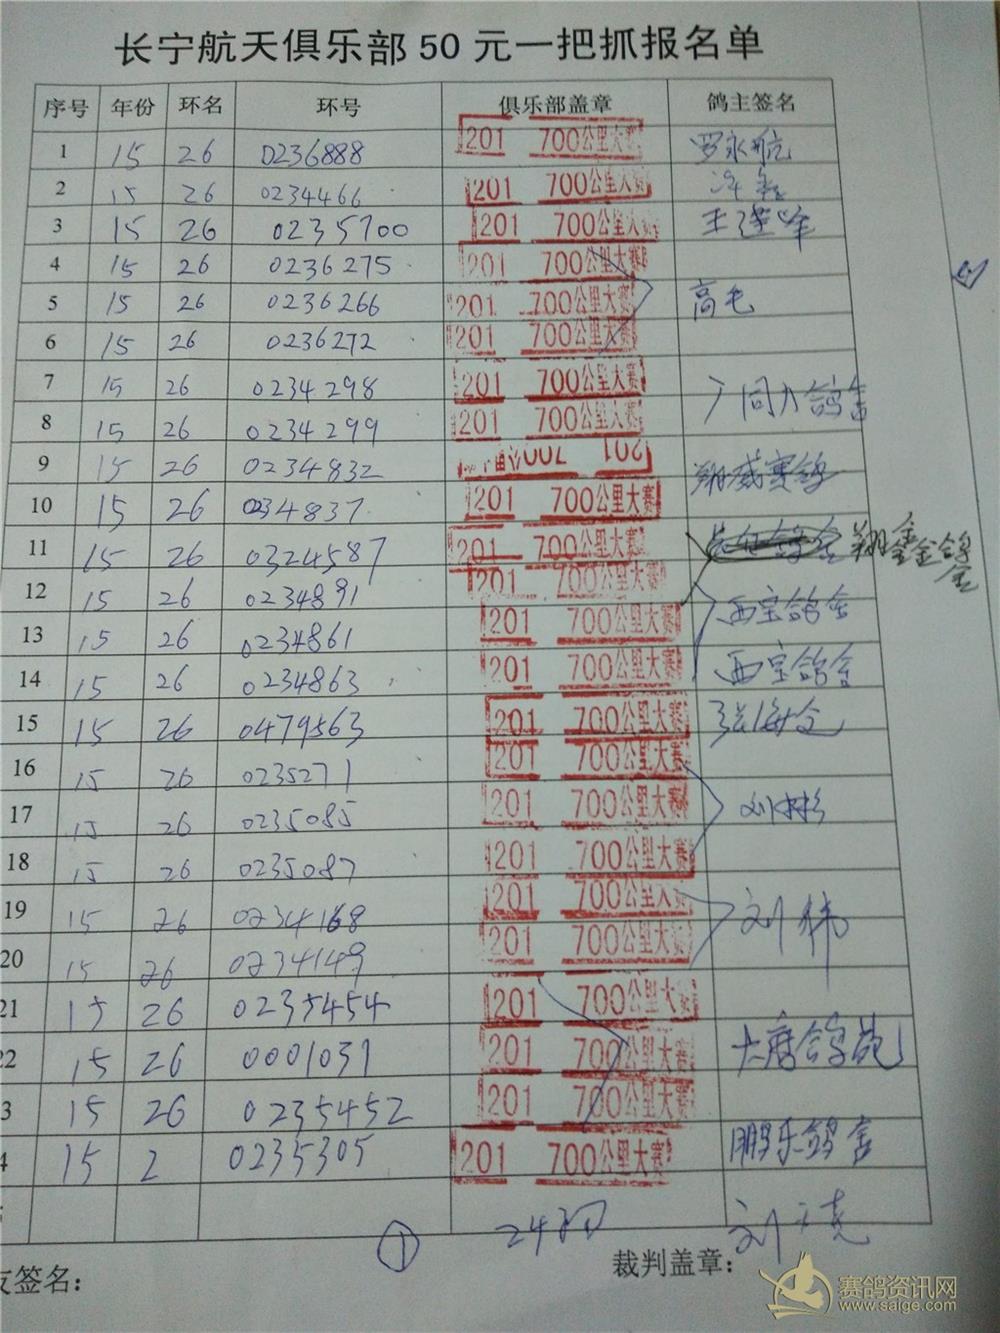 长宁航天俱乐部50元一把抓报名单
序号 年份 环名 环号 俱乐部盖章 鸽主签名
1 15 26 0236888 201 700公里大赛 罗永航
2 15 26 0234466 201 700公里大赛
3 15 26 0235700 201 700公里大赛 王建峰
4 15 26 0236275 201 700公里大赛
5 15 26 0236266 201 700公里大赛 高毛
6 15 26 0236272 201 700公里大赛
7 15 26 0234298 201 700公里大赛 同力鸽舍
8 15 26 0234299 201 700公里大赛
9 15 26 0234832 201 700公里 翔威赛鸽
10 15 26 0234837 201 700公里大赛
11 15 26 0324587 201 700公里大赛 翔鑫金鸽舍
12 15 26 0234891 201 700公里大赛 西宝鸽舍
13 15 26 0234861 201 700公里大赛
14 15 26 0234863 201 700公里大赛 西宝鸽舍
15 15 26 0479563 201 700公里大赛 张海文
16 15 26 0235271 201 700公里大赛
17 15 26 0235085 201 700公里大赛 刘彬彬
18 15 26 0235087 201 700公里大赛
19 15 26 0234168 201 700公里大赛 刘伟
20 15 26 0234149 201 700公里大赛
21 15 26 0235454 201 700公里大赛
2 15 26 0001039 201 700公里大赛 大唐鸽苑
3 15 26 0235452 201 700公里大赛
4 15 2 0235305 201 700公里大赛 鹏乐鸽舍
① 24羽
友签名： 裁判盖章：
赛鸽资讯网
www.saige.com